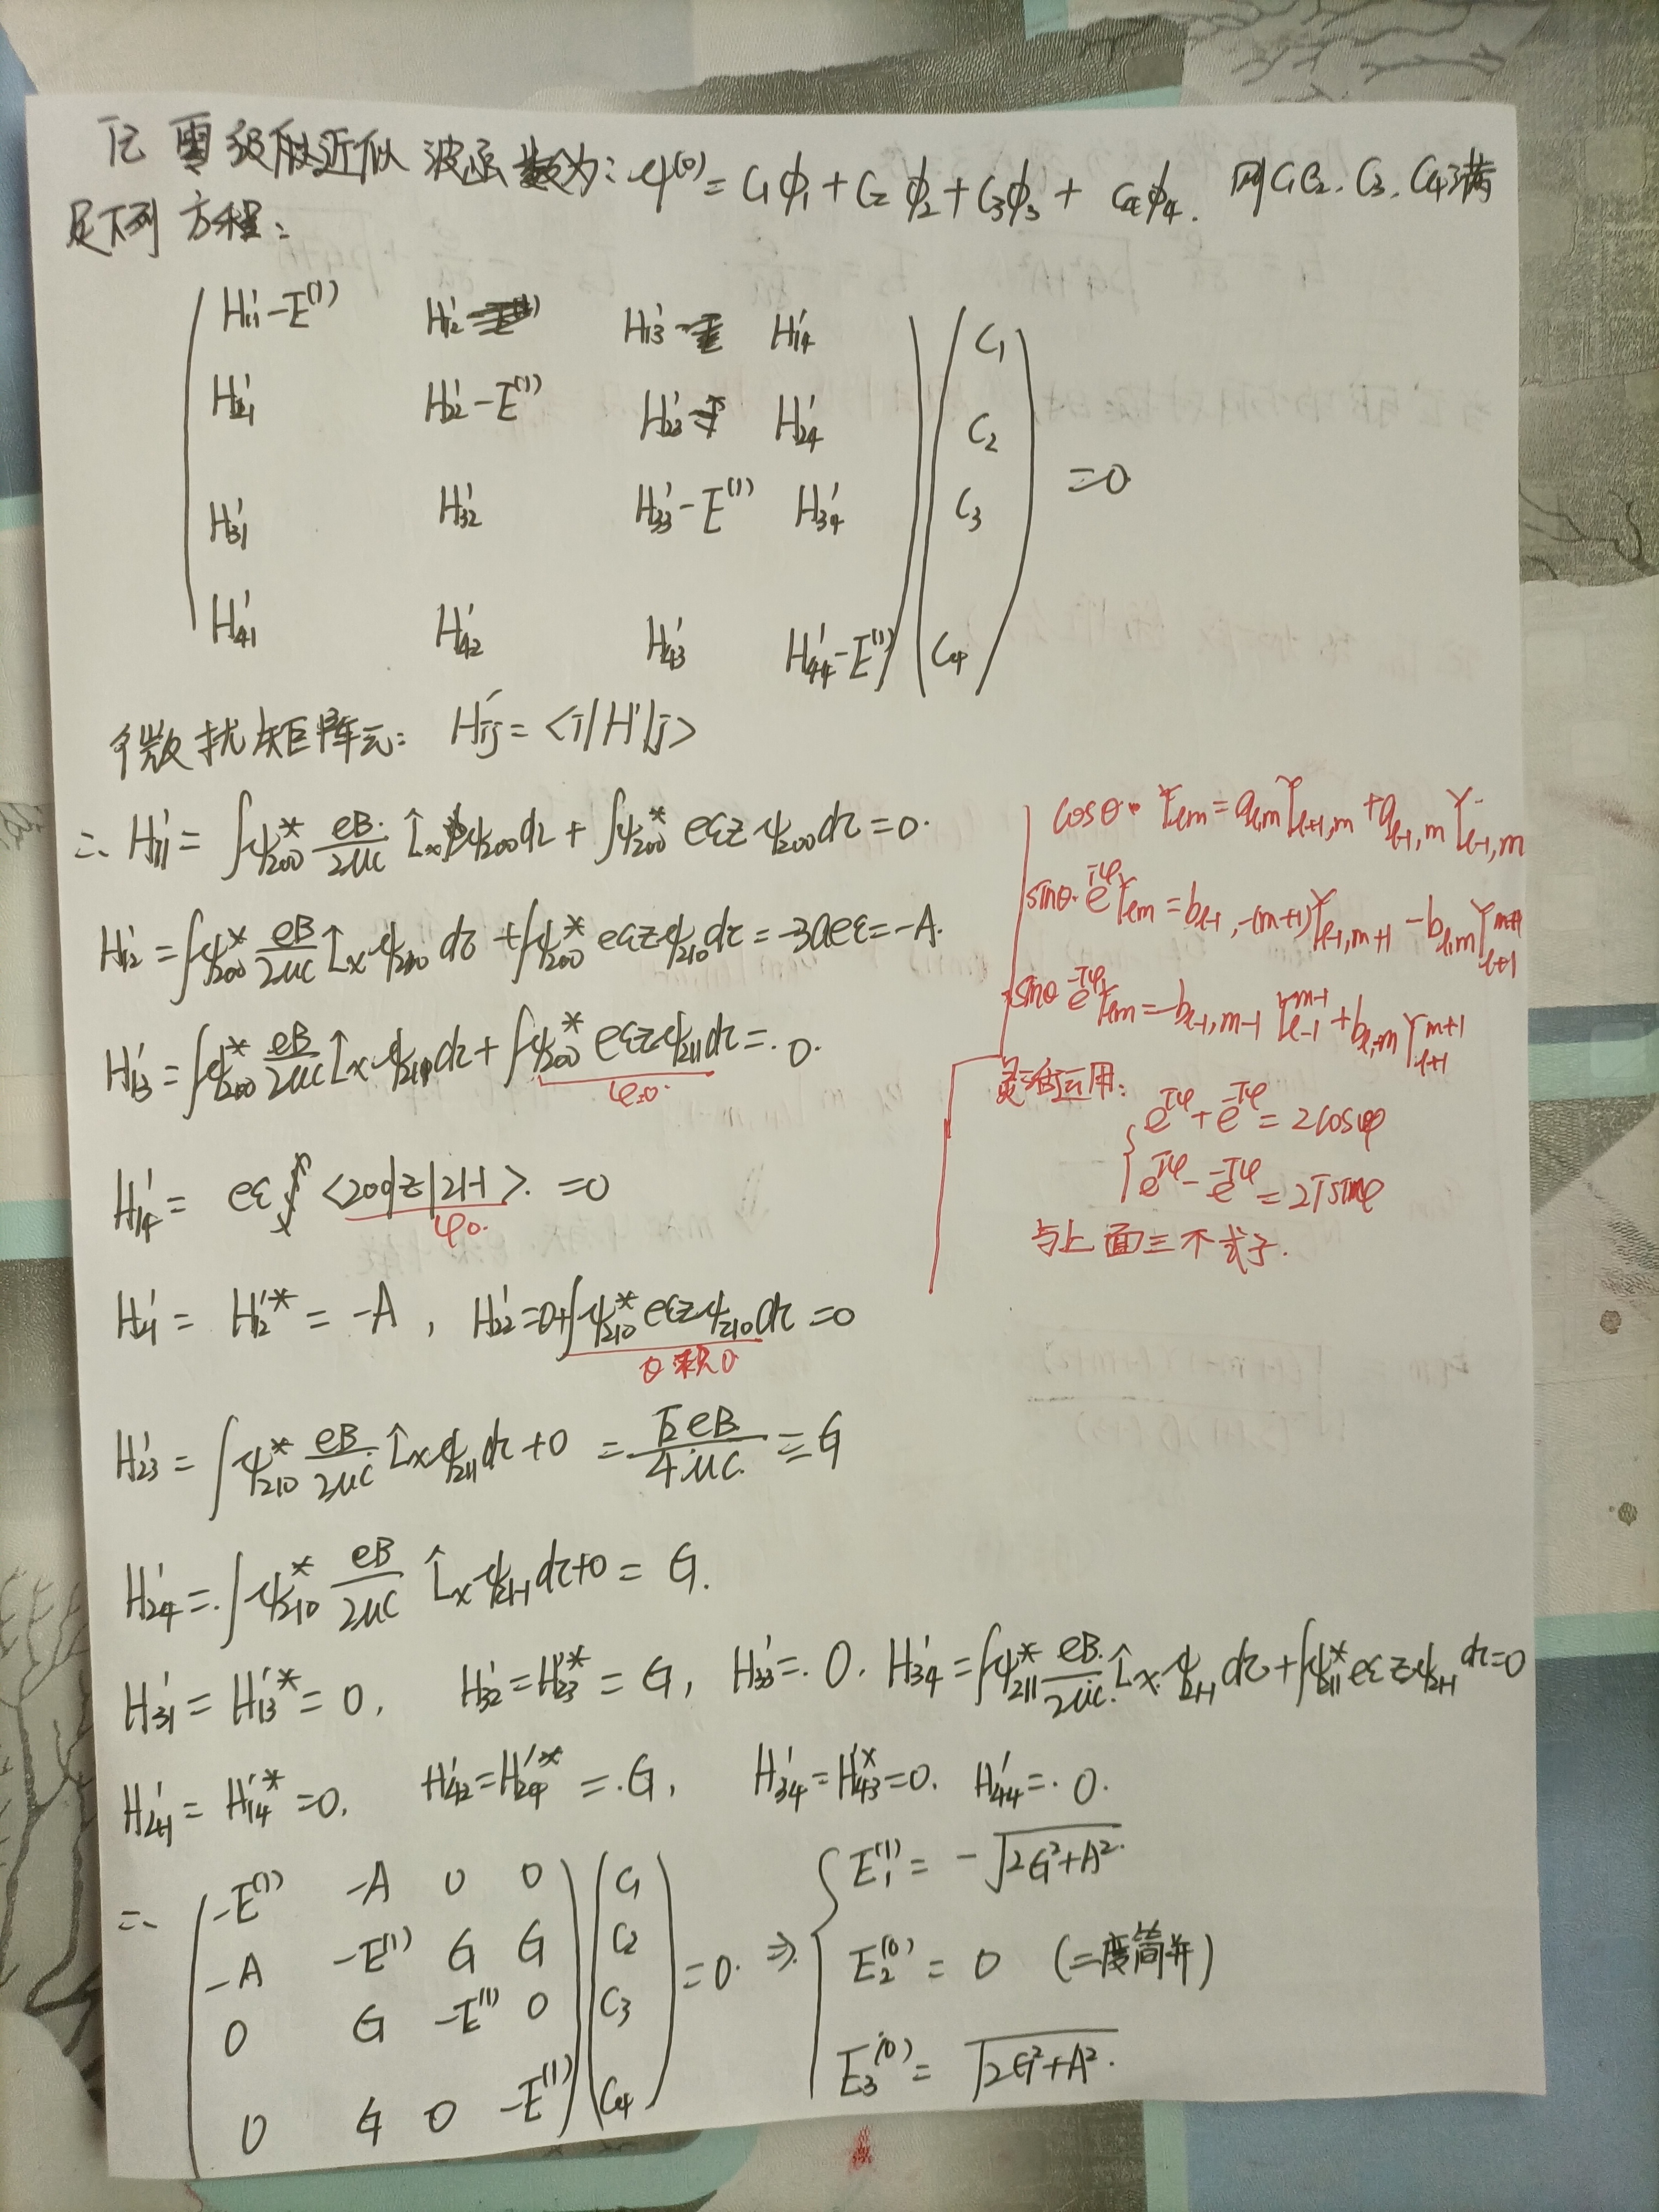 记零级近似波函数为: ψ⁽⁰⁾ = C₁ϕ₁ + C₂ϕ₂ + C₃ϕ₃ + C₄ϕ₄. 则C₁C₂. C₃. C₄满
足下列方程:
( H₁₁' - E⁽¹⁾  H₁₂'  H₁₃'  H₁₄' ) ( C₁ )
( H₂₁'  H₂₂' - E⁽¹⁾  H₂₃'  H₂₄' ) ( C₂ )
( H₃₁'  H₃₂'  H₃₃' - E⁽¹⁾  H₃₄' ) ( C₃ ) = 0
( H₄₁'  H₄₂'  H₄₃'  H₄₄' - E⁽¹⁾ ) ( C₄ )
微扰矩阵元: Hij' = <i|H'|j>
∴ H₁₁' = ∫ψ₂₀₀* eB/2μc L̂x ψ₂₀₀dτ + ∫ψ₂₀₀* eεz ψ₂₀₀dτ = 0.
H₁₂' = ∫ψ₂₀₀* eB/2μc L̂x ψ₂₁₀ dτ + ∫ψ₂₀₀* eεzψ₂₁₀dτ = -3aeε = -A.
H₁₃' = ∫ψ₂₀₀* eB/2μc L̂x ψ₂₁₁dτ + ∫ψ₂₀₀* eεzψ₂₁₁dτ = 0.
φ=0
H₁₄' = eε <200|z|21-1>. = 0
φ0.
H₂₁' = H₁₂'* = -A , H₂₂' = 0+∫ψ₂₁₀* eεzψ₂₁₀dτ = 0
θ积0
H₂₃' = ∫ψ₂₁₀* eB/2μc L̂x ψ₂₁₁dτ + 0 = √2eB/4μc = G
H₂₄' = ∫ψ₂₁₀* eB/2μc L̂x ψ₂₁₋₁dτ+0 = G.
H₃₁' = H₁₃'* = 0, H₃₂' = H₂₃'* = G, H₃₃' = 0. H₃₄' = ∫ψ₂₁₁* eB/2μc L̂x ψ₂₁₋₁dτ + ∫ψ₂₁₁* eεzψ₂₁₋₁dτ=0
H₄₁' = H₁₄'* = 0. H₄₂' = H₂₄'* = G, H₃₄' = H₄₃'* = 0. H₄₄' = 0.
∴ ( -E⁽¹⁾  -A  0  0 ) ( C₁ )
( -A  -E⁽¹⁾  G  G ) ( C₂ )
( 0  G  -E⁽¹⁾  0 ) ( C₃ ) = 0 ⇒
( 0  G  0  -E⁽¹⁾ ) ( C₄ )
E₁⁽¹⁾ = -√2G²+A²
E₂⁽⁰⁾ = 0 (二度简并)
E₃⁽⁰⁾ = √2G²+A².
cosθ·Yℓm = aℓmYℓ+1,m + aℓ-1,mYℓ-1,m
sinθ·e^iφ Yℓm = bℓ-1,-(m+1)Yℓ-1,m+1 - bℓ,mY^m+1 ℓ+1
sinθ e^-iφ Yℓm = -bℓ-1,m-1 Y^m-1 ℓ-1 + bℓ,-mY^m+1 ℓ+1
灵活运用:
e^iφ + e^-iφ = 2cosφ
e^iφ - e^-iφ = 2isinφ
与上面三个式子.